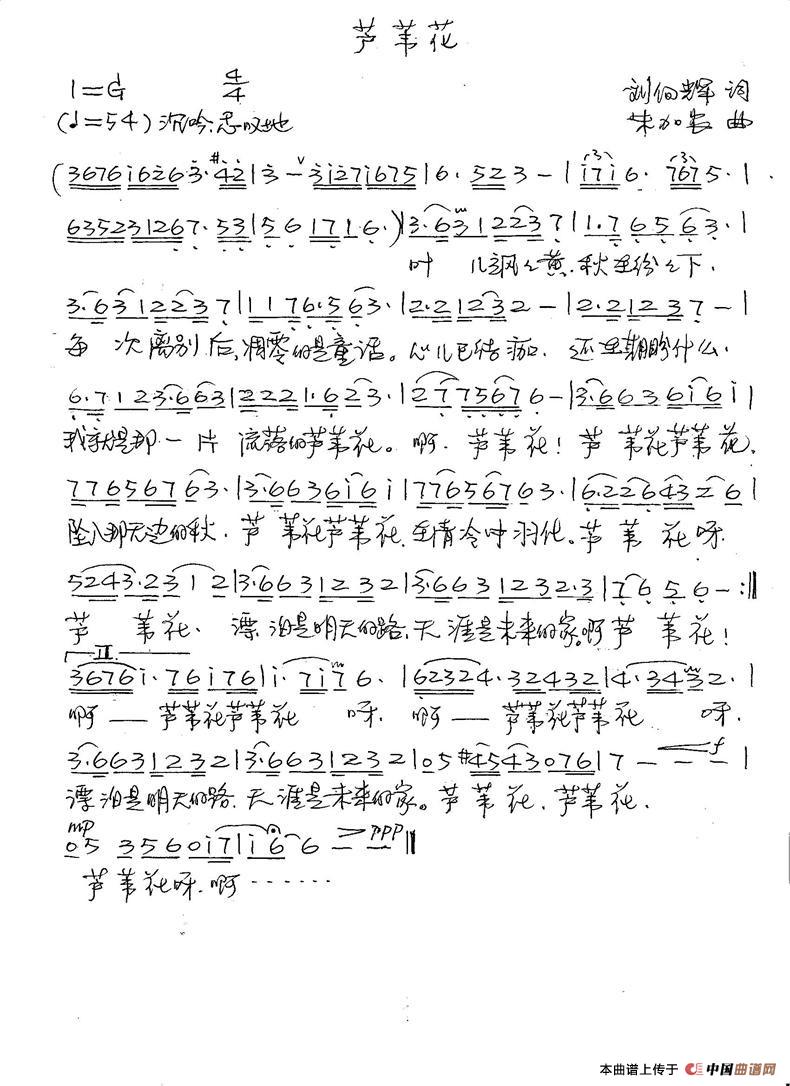 芦苇花
1=G 4/4
刘伯辉 词
(♩=54) 沉吟、思叹地
朱加农 曲
(3676i6263·#42|3-3i27i675|6·523-|i7i6·7675·|
635231267·53|561716·)|3·6312237|1·76563·|
叶 儿飒飒黄,秋里纷纷下,
3·6312237|1176·563·|2·21232-|2·21237-|
每 次离别后,凋零的是童话。心儿已结痂, 还里期盼什么,
6·7123·663|2221·623·|27775676-|3·66366i6i|
我就是那一片 流落的芦苇花。啊, 芦苇花!芦 苇花芦苇花,
7765676 63·|3·66366i6i|776567663·|6·226432 6|
坠入那无边的秋, 芦 苇花芦苇花,在清冷中羽化。芦 苇 花呀,
5243·2312|3·6631232|3·6631232·3|7656-:||
芦 苇花、 漂泊是明天的路,天涯是未来的家。啊芦 苇花!
II
3676i·76i76|i·7i76·|62324·32432|4·3432·|
啊——芦苇花芦苇花 呀, 啊——芦苇花芦苇花 呀,
3·6631232|3·6631232|05#45430761|7---|
f
漂泊是明天的路,天涯是未来的家。芦苇花,芦苇花,
mp
05 3560i7|i66--||
ppp
芦苇花呀,啊……
本曲谱上传于 中国曲谱网